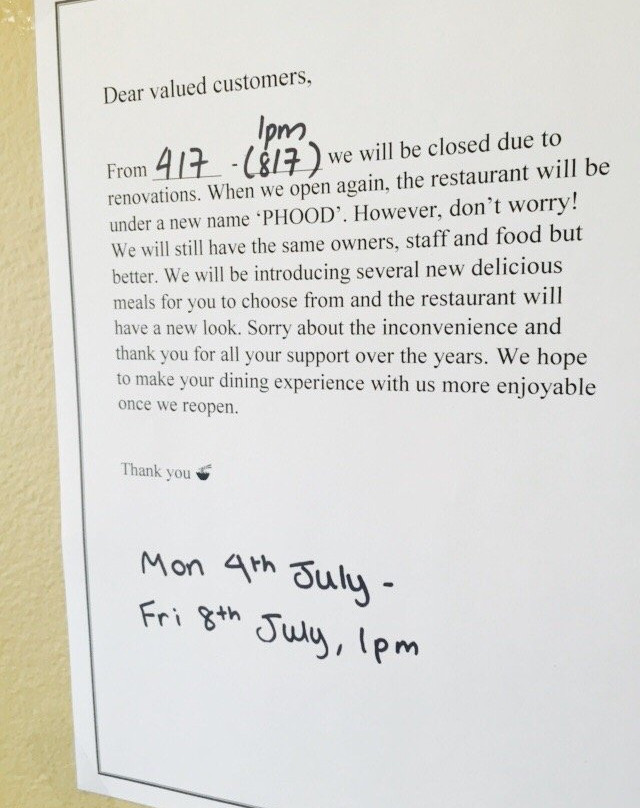 Dear valued customers,
1pm
From 4/7 - (8/7) we will be closed due to
renovations. When we open again, the restaurant will be
under a new name ‘PHOOD’. However, don’t worry!
We will still have the same owners, staff and food but
better. We will be introducing several new delicious
meals for you to choose from and the restaurant will
have a new look. Sorry about the inconvenience and
thank you for all your support over the years. We hope
to make your dining experience with us more enjoyable
once we reopen.
Thank you
Mon 4th July -
Fri 8th July, 1pm